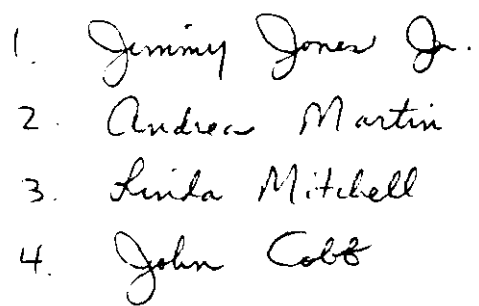 1. Jimmy Jones Jr.
2. Andrea Martin
3. Linda Mitchell
4. John Cobb